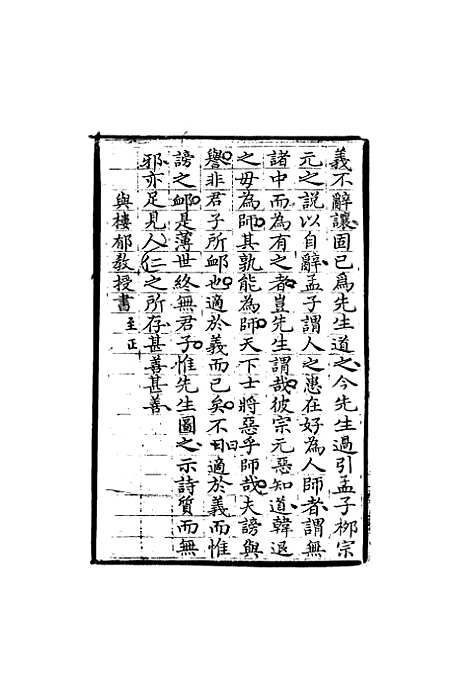 義不辭讓固已爲先生道之今先生過引孟子柳宗
元之說以自辭孟子謂人之患在好為人師者謂無
諸中而為有之者豈先生謂哉彼宗元惡知道韓退
之毋為師其孰能為師天下士將惡乎師哉夫謗與
譽非君子所䘏也適於義而已矣不曰適於義而惟
謗之䘏是薄世終無君子惟先生圖之示詩質而無
邪亦足見仁人之所存甚善甚善
與樓郁教授書 至正